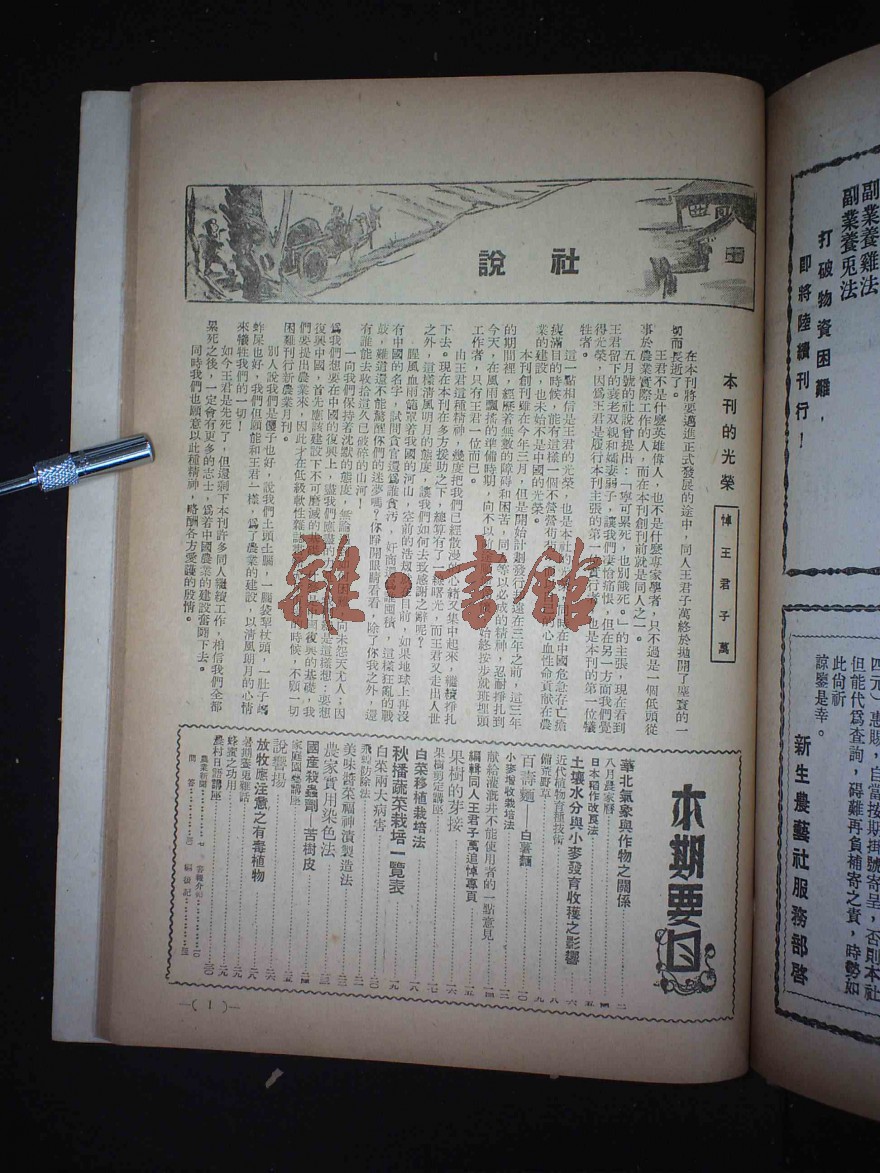 社說
本刊的光榮
悼王君子萬
在本刊將要邁進正式發展的途中,同人王君子萬終於拋開了塵寰的一
切而長逝了。
王君不是什麼英雄偉人,也不是什麼專家學者,只不過是一個低頭從
事於農業實際工作的人,而在本刊創刊前就是同人之一。
五月號的社說曾提出:「寧可累死,也別餓死。」的主張,現在看到
王君留下的衰老双親和嬌妻弱子,讓我們凄愴痛恨,但在另一方面我們覺
得光榮,因爲王君是履行本刊主張的第一個實行者,也是本刊的第一位犧
牲者。
這一點相信是王君的光榮,也是本社的光榮,同時在中國危急存亡瘡
痍滿目的時候,能有這樣一個不營營苟
心血性命貢獻在農
業的建設,也未始不是中國的光榮。
本刊創刊雖在今年三月,但是開始計劃發行却遠在三年之前,這三年
的期間裡,經歷着無數的障碍和困苦,同人等以必成的精神,忍耐掙扎到
今天,在風雨飄搖的準備時期,向不以
始終按步就班埋頭
工作者,只有王君一位而已。
由王君這種精神,幾度把我們已經散漫的心緒又集中起來,繼續掙扎
下去。現在本刊在多方援助之下,總算有了一綫曙光,而王君又走出人世
之外,這樣清風明月的態度,讓我們如何去致感謝之辭呢?
腥風血雨籠罩着我國的河山,空前的浩
目前,如果地球上再沒
有中國的名字,試問貪官還爲誰貪汚,奸商還爲誰囤積,這樣狂亂的戰
鼓,難道還不能驚醒你們的迷夢嗎?你睜開眼睛看看,除了你我之外,還
有誰能去收拾這久已破碎的山河!
一向我們保持着沈默的態度,無論
向未怨天尤人;因
爲我們想要在中國的復興上,盡我們應盡的
是這樣想:要想
復興中國,首先應該建設下不可磨滅的
復興的基礎,我
們要提出農業來,因此才在低級軟性雜誌
時候,不顧一切
困難刊行新農業月刊。
別人說我們是儍子也好,說我們土頭土腦,一腦袋犁杖頭,一肚子螞
蚱屎也好,我們但願能和王君一樣,爲了農業的建設,以清風明月的心情
來犧牲我們的一切!
如今王君是先死了,但還剩下本刊許多同人繼續工作,相信我們全部
累死之後,一定會有更多的志士,爲着中國農業的建設奮鬪下去。
同時我們也願意以此種精神,略酬各方愛護的殷情。
雜·書館
本期要目
華北氣象與作物之關係……二
八月農家曆……四
日本稻作改良法……五
土壤水分與小麥發育收穫之影響……六
近代植物育種技術……八
備荒野草……九
百壽麵——白薯麵……一〇
小麥增收栽培法……一二
獻給灌漑井不能使用者的一點意見……一四
編輯同人王君子萬追悼專頁……一五
果樹的芽接……一六
果樹剪定講座……一七
白菜移植栽培法……一八
秋播蔬菜栽培一覽表……一九
白菜兩大病害……二〇
飛蝗防除法……二一
美味醬菜福神漬製造法……二二
農家實用染色法……二三
國産殺蟲劑——苦樹皮……二四
家庭園藝講座……二五
說響場……二六
放牧應注意之有毒植物……二八
暑期養兎雜話……二九
蜂蜜之功用……二九
農村日語講座……三〇
農業新聞……七
書報介紹……一〇
問答
編後記
—( 1 )—
副業養雞法
副業養兎法
打破物資困難,
即將陸續刊行!
四元)惠賜,自當按期掛號寄呈,否則本社
但能代爲查詢,碍難再負補寄之責,時勢如
此尚祈
諒鑒是幸。
新生農藝社服務部啓